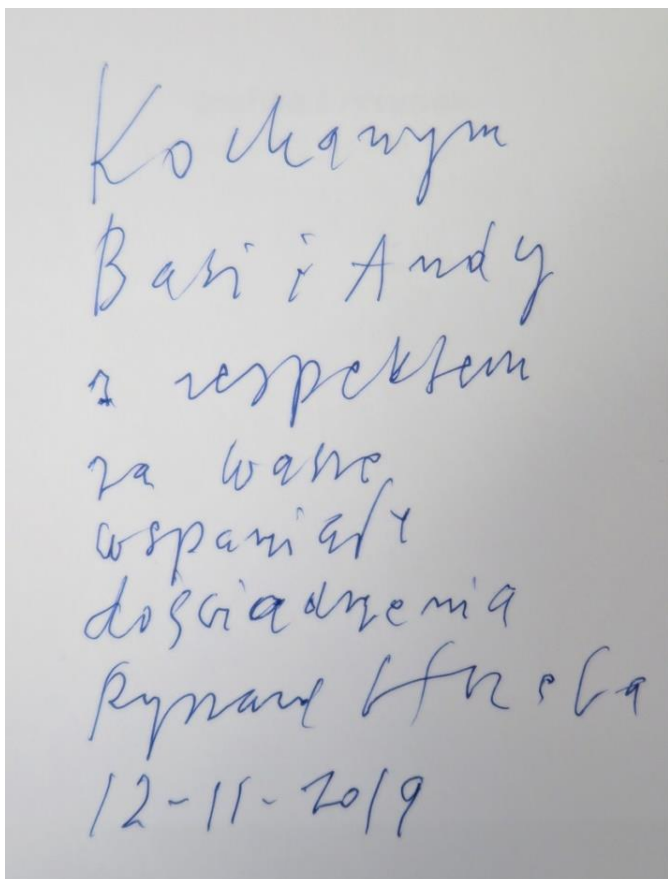 Kochanym
Basi i Andy
z respektem
za wasze
wspaniałe
doświadczenia
Ryszard
12-11-2019